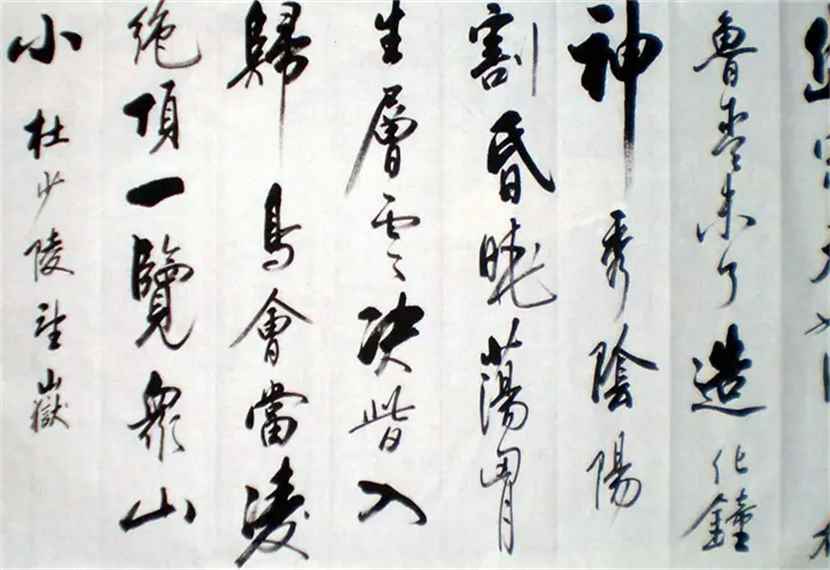 魯青未了造化鐘
神秀陰陽
割昏曉蕩胷
生層雲决眥入
歸鳥會當凌
絕頂一覽衆山
小 杜少陵望嶽